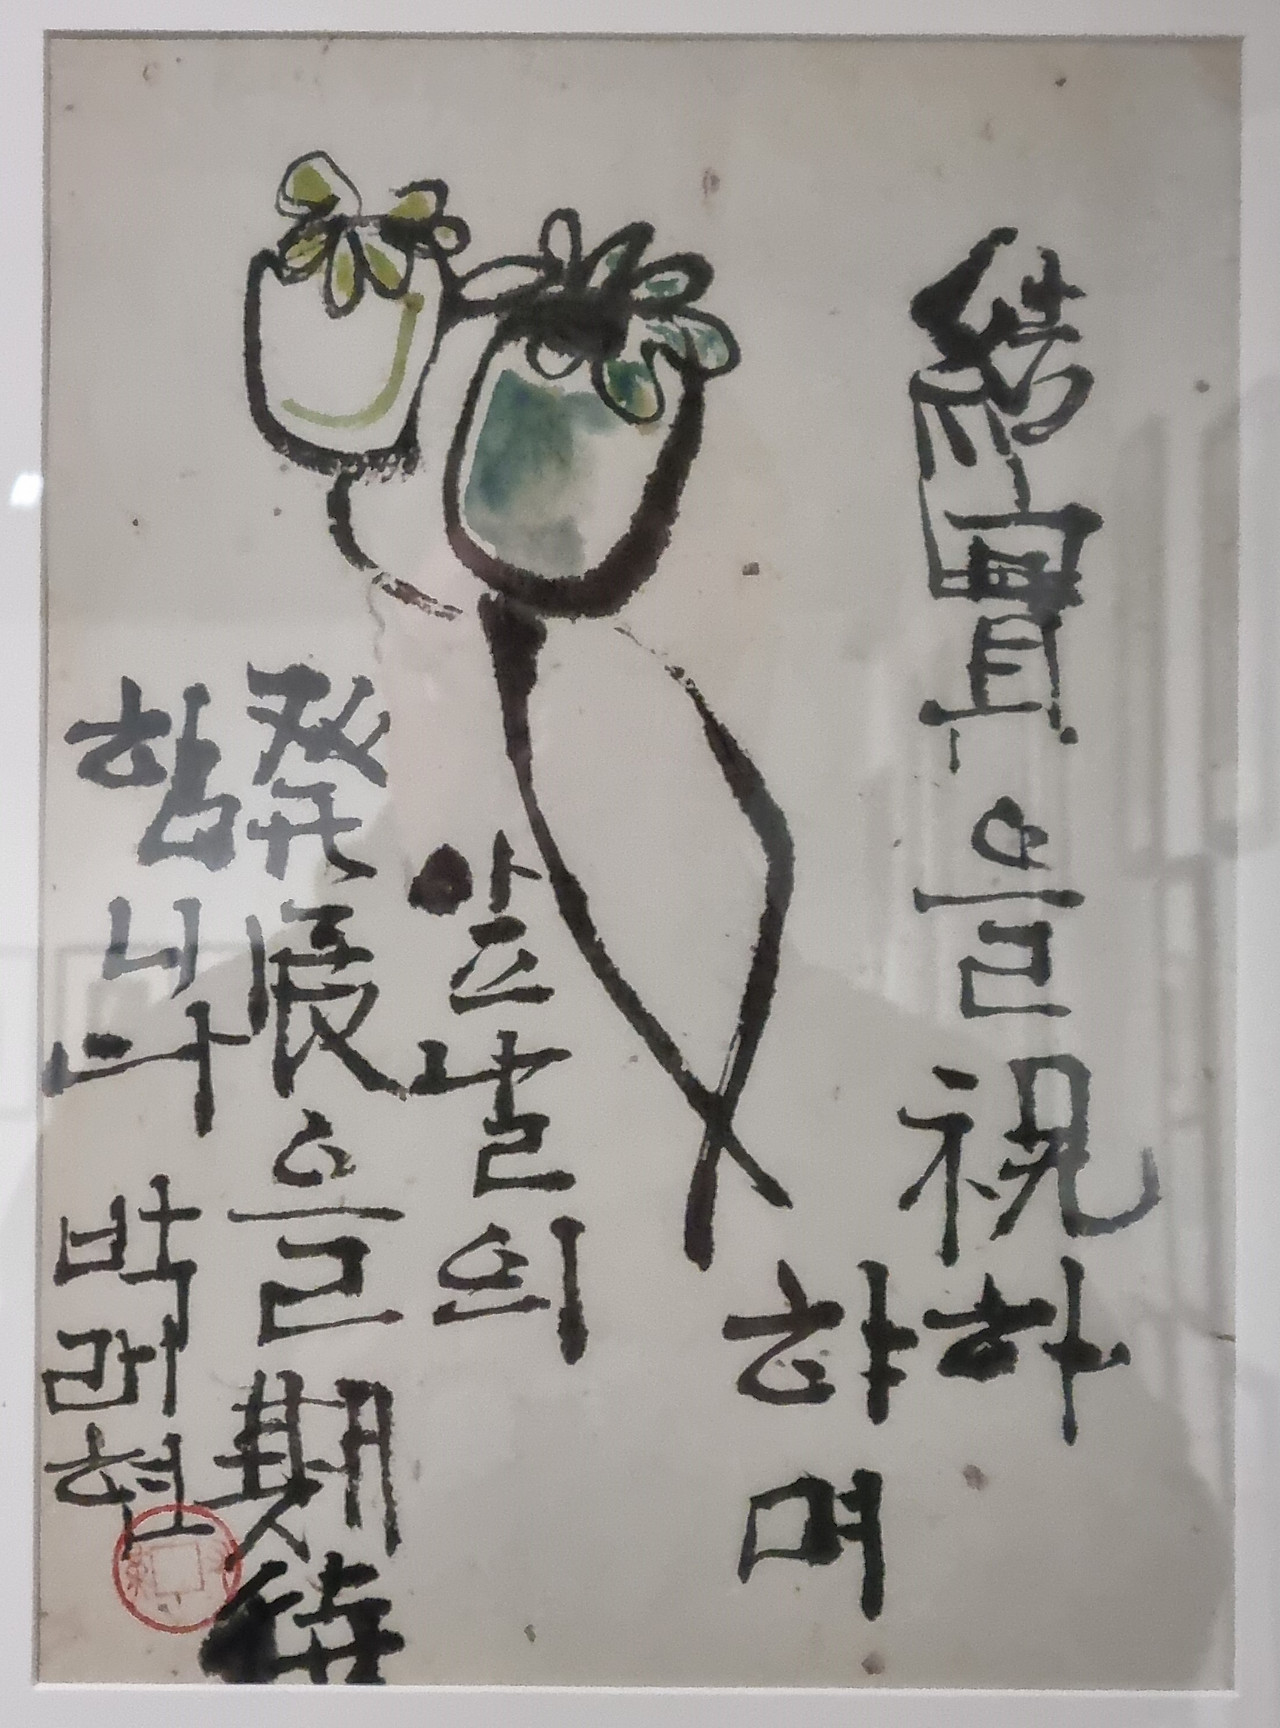 結實을祝하
하며
앞날의
發展을期待
합니다 박래현